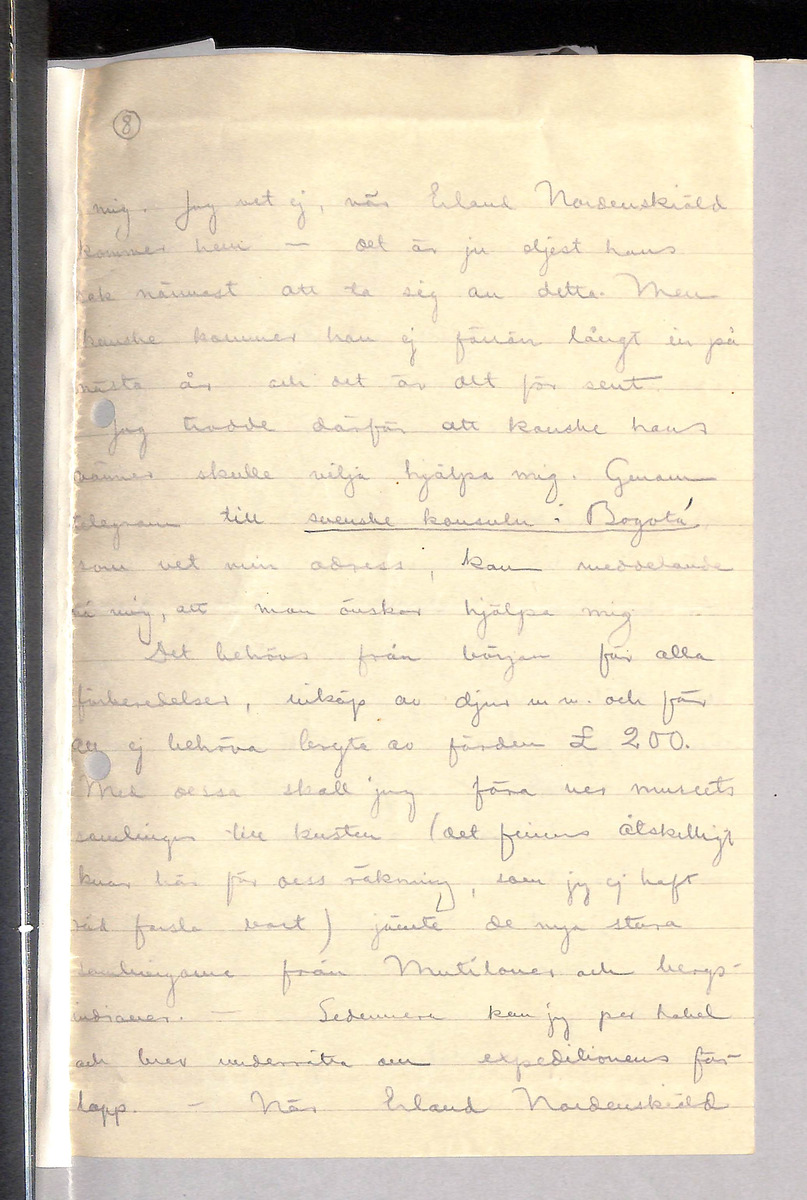 8
mig. Jag vet ej, när Erland Nordenskiöld
kommer hem — det är ju eljest hans
sak närmast att ta sig an detta. Men
kanske kommer han ej förrän långt in på
nästa år och det är allt för sent.
Jag trodde därför att kanske hans
vänner skulle vilja hjälpa mig. Genom
telegram till svenske konsuln i Bogotá,
som vet min adress, kan meddelande
nå mig, att man önskar hjälpa mig
Det behövs från början för alla
förberedelser, inköp av djur m m. och för
att ej behöva bryta av färden £ 200.
Med dessa skall jag föra ner museets
samlingar till kusten (det finns åtskilligt
kvar här för dess räkning, som jag ej haft
råd forsla bort) jämte de nya stora
samlingarna från Motiloner och bergs-
indianer. — Sedermera kan jag per kabel
och brev underrätta om expeditionens för-
lopp. — När Erland Nordenskiöld